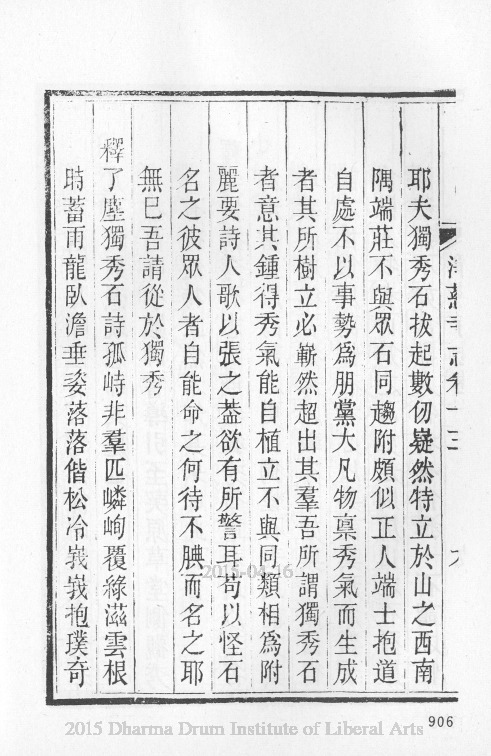 淨慈寺志卷十三
耶夫獨秀石拔起數仞嶷然特立於山之西南
隅端莊不與眾石同趨附頗似正人端士抱道
自處不以事勢爲朋黨大凡物禀秀氣而生成
者其所樹立必嶄然超出其羣吾所謂獨秀石
者意其鍾得秀氣能自植立不與同類相爲附
麗要詩人歌以張之葢欲有所警耳苟以怪石
名之彼眾人者自能命之何待不腆而名之耶
無巳吾請從於獨秀
釋了塵獨秀石詩孤峙非羣匹嶙峋覆綠滋雲根
時蓄雨龍臥澹垂姿落落偕松冷峩峩抱璞奇
2015-04-16
906
2015 Dharma Drum Institute of Liberal Arts